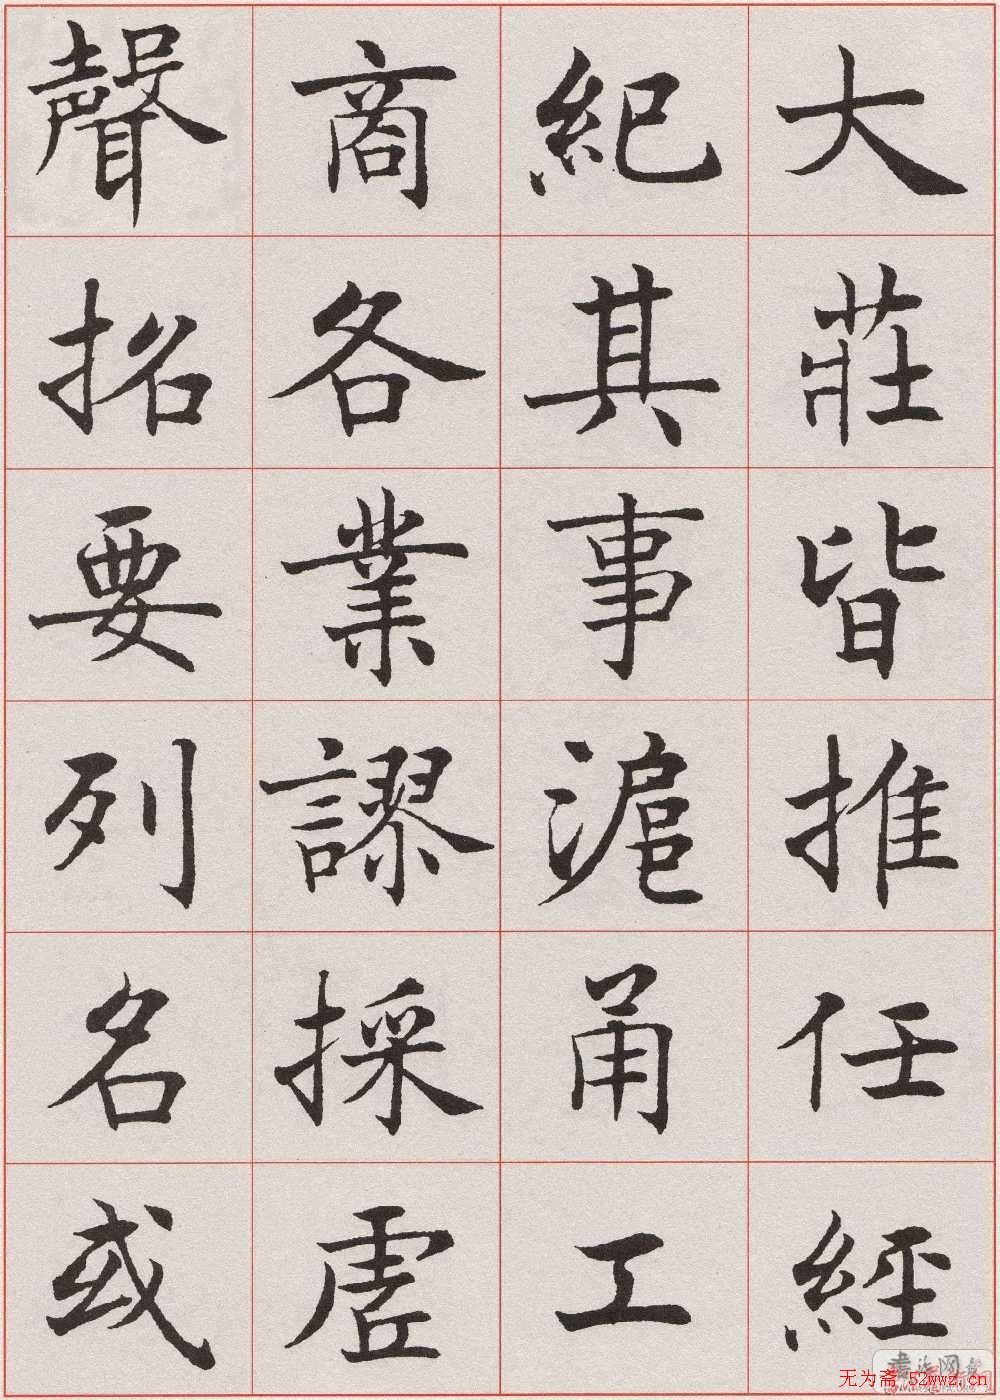 大莊皆推任經
紀其事滬甬工
商各業謬採虛
聲招要列名或
无为斋 52wwz.cn